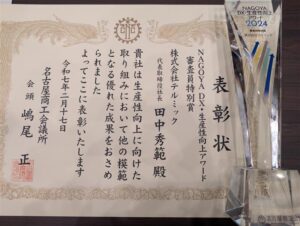 表彰状
NAGOYA DX・生産性向上アワード
審査員特別賞
株式会社テルミック
代表取締役社長 田中秀範 殿
貴社は生産性向上に向けた
取り組みにおいて他の模範
となる優れた成果をおさめ
られました
よってここに表彰いたします
令和七年二月十七日
名古屋商工会議所
会頭 嶋尾 正
NAGOYA
DX・生産性向上
アワード
2024